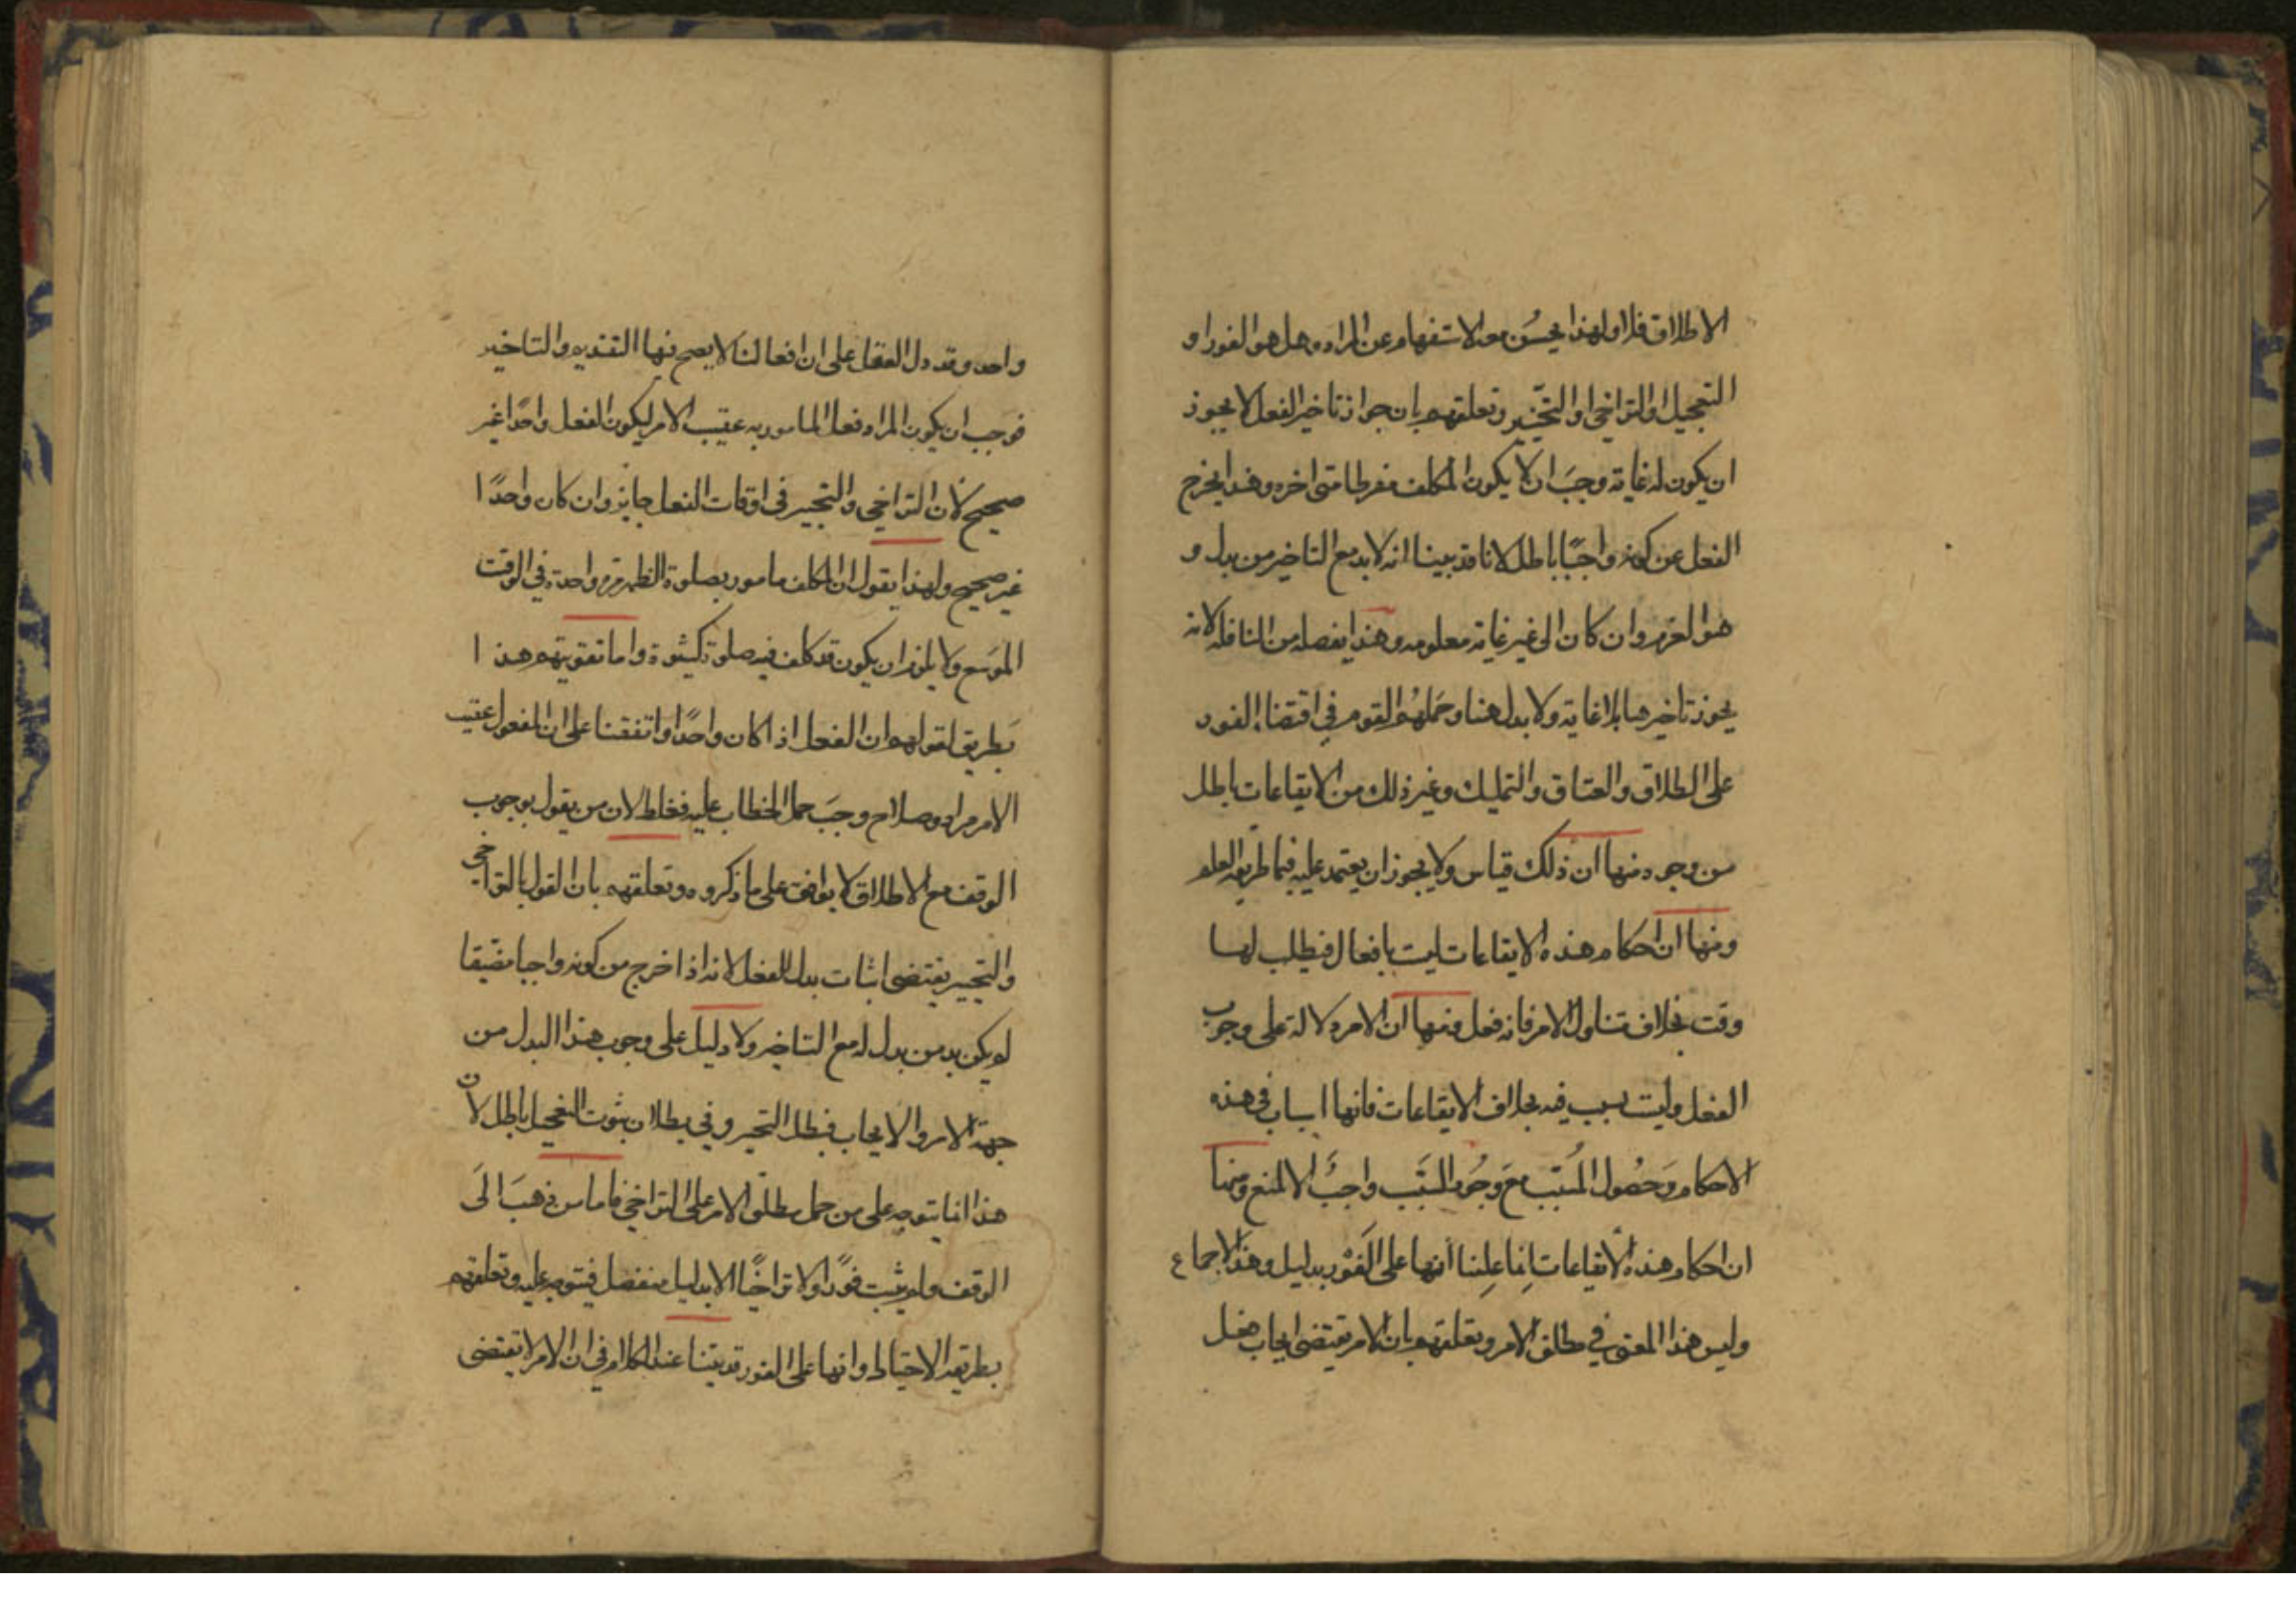 الاطلاق فلا ولهذا يحسُن معه الاستفهام عن المراد وهل هو الفور او
التعجيل او التراخي او التخيير وتعلقهم بان جواز تاخير الفعل لا يجوز
ان يكون له غاية وجبَ ان لا يكون المكلف مفرطا متى اخره وهذا يخرج
الفعل عن كونه واجبًا باطل لانا قد بينا انه لا بد مع التاخير من بدل و
هو العزم وان كان الى غير غاية معلومه وهذا يفصله من النافله لانه
يجوز تاخيرها بلا غاية ولا بدل هنا وحَملهُم القوم في اقتضاء الفور
على الطلاق والعتاق والتمليك وغير ذلك من الايقاعات باطل
من وجوه منها ان ذلك قياس ولا يجوز ان يعتمد عليه فيما طريقه العلم
ومنها ان احكام هذه الايقاعات ليت بافعال فيطلب لها
وقت بخلاف تناول الامر فانه فعل ومنها ان الامر دلالة على وجوب
الفعل وليت بسبب فيه بخلاف الايقاعات فانها اسباب في هذه
الاحكام وَحصُول المُسَبّب مَع وجُود السَبَب واجبٌ الا لمنع ومنها
ان احكام هذه الايقاعات انما علِمنا أنها على الفَوْر بدليل وهذا الاجماع
وليس هذا المعنى في مطلق الامر وتعلقهم بان الامر يقتضى ايجاب فعل
واحد وقد دل العقل على ان افعالنا لا يصح فيها التقديم والتاخير
فوجب ان يكون المراد فعل المامور به عقيب الامر ليكون الفعل واحدًا غير
صحيح لان التراخي والتخيير في اوقات الفعل جايز وان كان واحدًا
غير صحيح ولهذا يقول ان المكلف مامور بصلوة الظهر مرة واحدة في الوقت
الموَسع ولا يلزم ان يكون قد كلف فيه صلوة كثيرة واما تقويتهم هذا
بَطريق لقولهم ان الفعل اذا كان واحدًا واتفقنا على ان المفعول عقيب
الامر مراد وصلاح وجبَ حمل الخطاب عليه فغلط لان من يقول بوجوب
الوقف مع الاطلاق لا يوافق على ما ذكروه وتعلقهم بان القول بالتراخي
والتخيير يقتضى اثبات بدل الفعل لانه اذا خرج من كونه واجبا مضيقا
لم يكن بد من بدل له مع التاخير ولا دليل على وجوب هذا البدل من
جهة الامر والايجاب فبطل التخير وفي بطلان ثبوت التعجيل باطل لان
هذا انما يتوجه على من حمل مطلق الامر على التراخي فاما من ذهبَ الَى
الوقف ولم يثبت فورًا ولا تراخيًا الا بدليل منفصل فيتوجه عليه وتعلقهم
بطريقه الاحتياط وانها على الفور قد بينا عند الكلام في ان الامر لا يقتضى